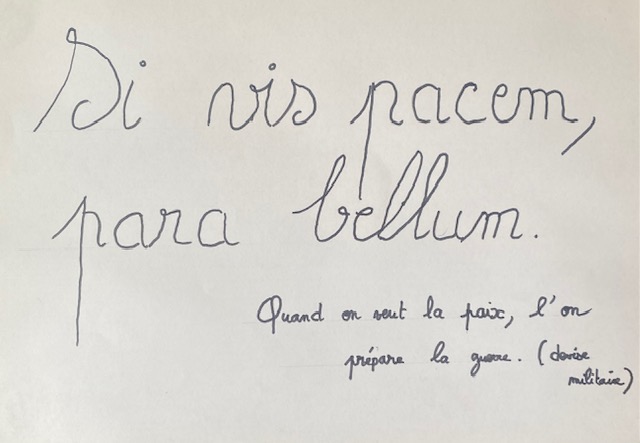 Si vis pacem,
para bellum.
Quand on veut la paix, l'on
prépare la guerre. (devise
militaire)